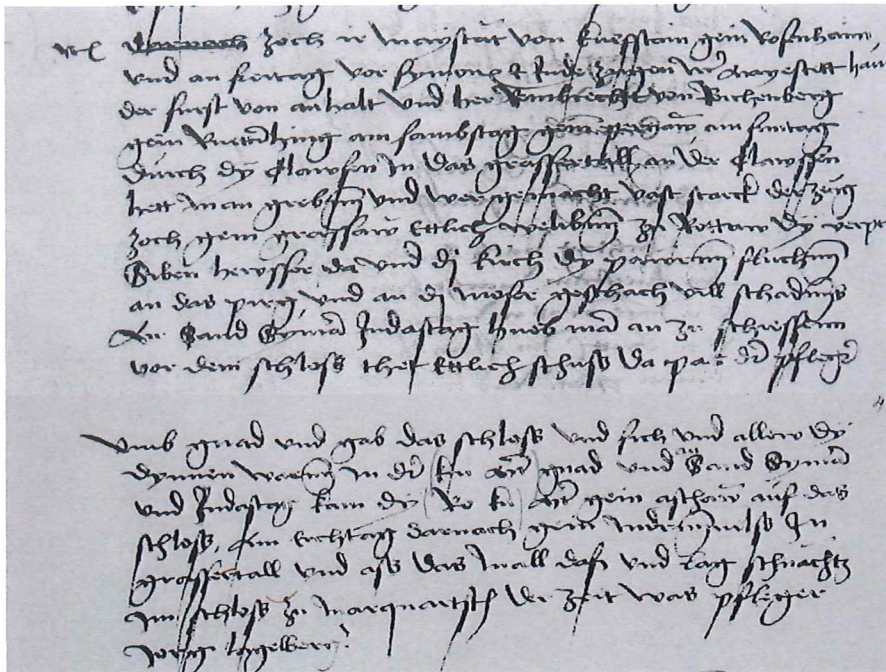 zoch ir maystat von kueffstain gein Rosenhaim
und an freitag vor Symonis & Jude zugen ir mayestett haur
der furst von anhalt und her Reinbrecht von Reichenberg
gein am sambstag gein am suntag
durch dy Clawsen in das grassertall an der Clawssen
hett man grebn und wer gemacht vast starck der zeug
zoch gein grassaw ettlich belibnn zu Rottaw dy verpr
Siben hewsser da und dj kirch dy pawrenn fluchnn
an das pirg und an dj moser geschach vill schadenns
An Sand Symon Judastag hueb man an zu schiessenn
vor dem schloss thet ettlich schuss da pat der pfleger
umb gnad und gab das schloss und sich und allew dy
dynnen warnn in der kn Mt gnad und Sand Symon
und Judastag kam dy Ro kn Mt gein aschaw auf das
schloss. Am Erchtag darnach gein in
grassertall und ass das mall dasz und lag schnachtz
im schloss zu marquartst der zeit was pfleger
Jorig